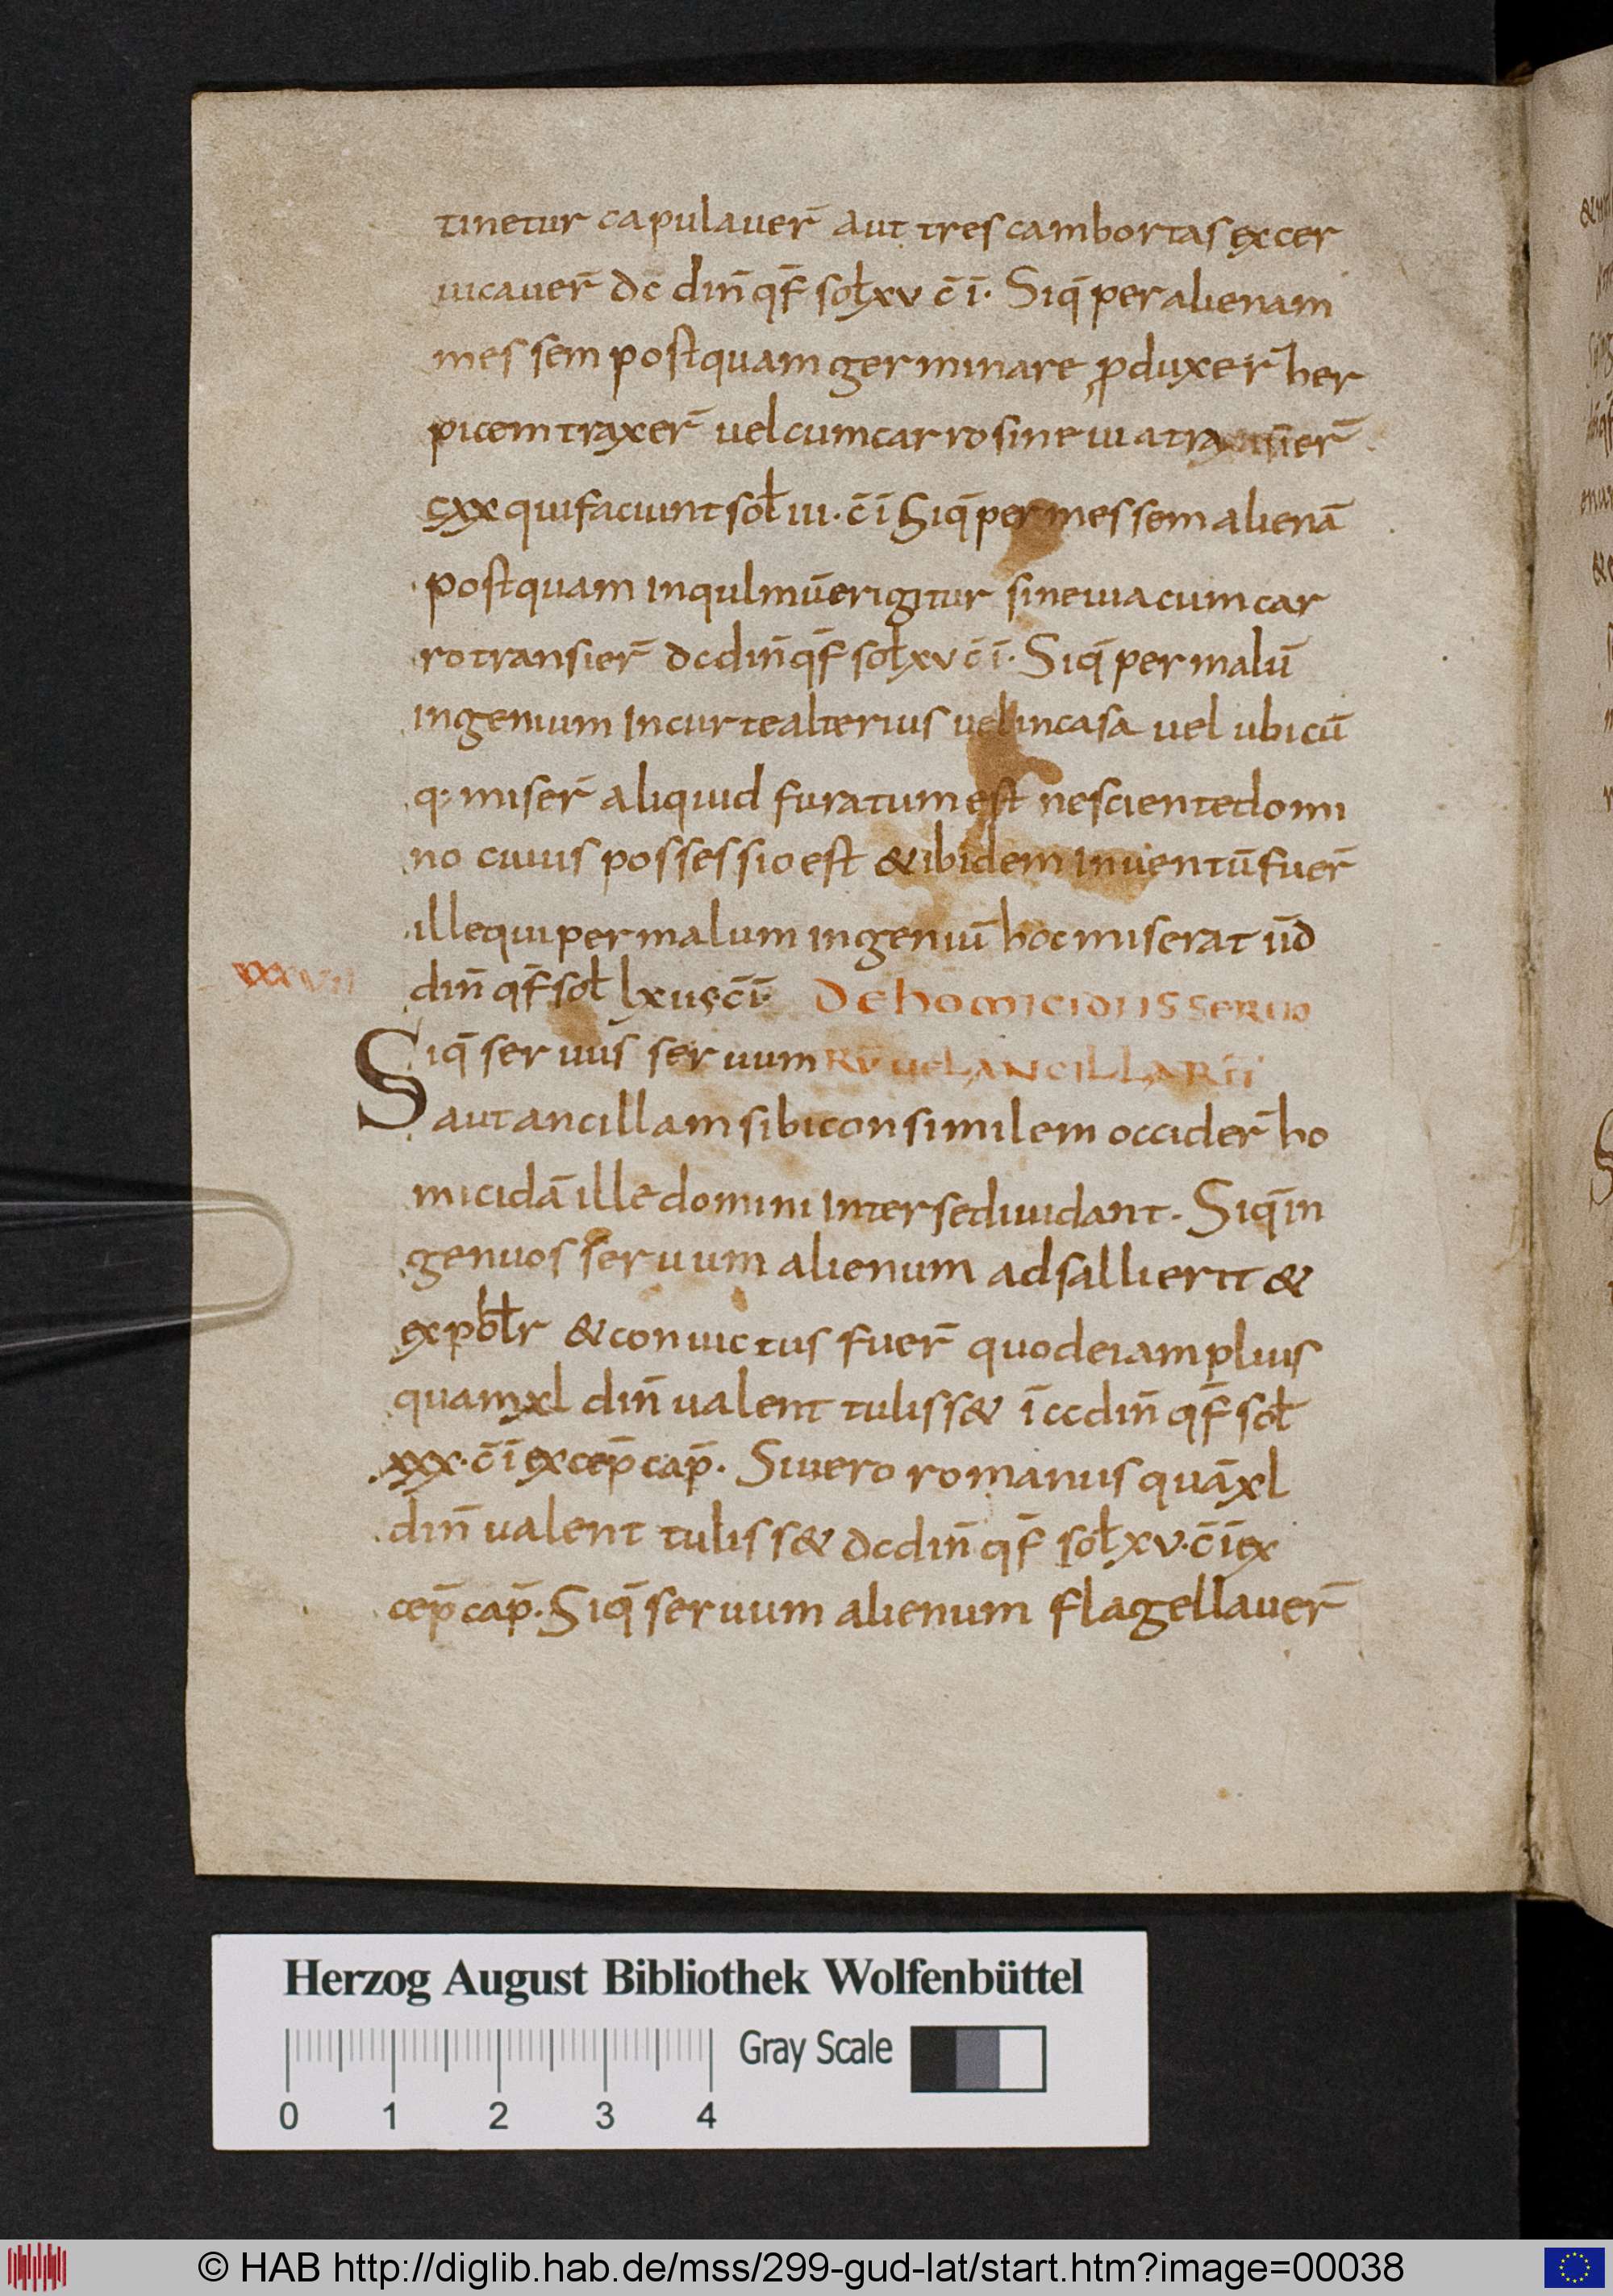 tinetur capulauer̄ aut tres cambortas excer
uicauer̄ dc̄ din̄ qf̄ soł xv c̄ ī. Siq̄ per alienam
messem postquam germinare ꝓduxer̄ her
picem traxer̄ uel cum carro sine uia
cxx qui faciunt soł iii. c̄ ī Siq̄ per messem alienā
postquam in qulmū erigitur sine uia cum car
ro transier̄ dc din̄ qf̄ soł xv c̄ ī. Siq̄ per malū
ingenium in curte alterius uel in casa uel ubicū
q; miser̄ aliquid furatum est nesciente domi
no cuius possessio est & ibidem inuentū fuer̄
ille qui per malum ingeniū hoc miserat īīd
din̄ qf̄ soł c̄ ī. De homicidiis seruo
Siq̄ seruus seruum rū uel ancillarū
aut ancillam sibi consimilem occider̄ ho
micidā ille domini inter se diuidant. Siq̄ in
genuos seruum alienum adsallierit &
expołr & conuictus fuer̄ quod ei amplius
quam xl din̄ ualent tuliss& ī cc din̄ qf̄ soł
xxx. c̄ ī excep̄ cap̄. Si uero romanus quā xl
din̄ ualent tuliss& dc din̄ qf̄ soł xv. c̄ ī ex
cep̄ cap̄. Siq̄ seruum alienum flagellauer̄
Herzog August Bibliothek Wolfenbüttel
Gray Scale
0 1 2 3 4
© HAB http://diglib.hab.de/mss/299-gud-lat/start.htm?image=00038